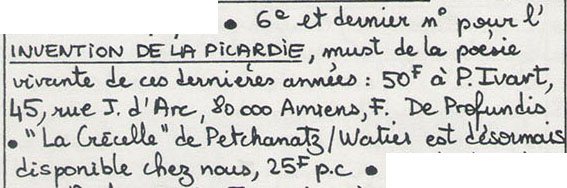 • 6e et dernier n° pour l'
INVENTION DE LA PICARDIE, must de la poésie
vivante de ces dernières années : 50F à P. Ivart,
45, rue J. d'Arc, 80 000 Amiens, F. De Profundis
• "La Crécelle" de Petchanatz/Watier est désormais
disponible chez nous, 25F p.c •